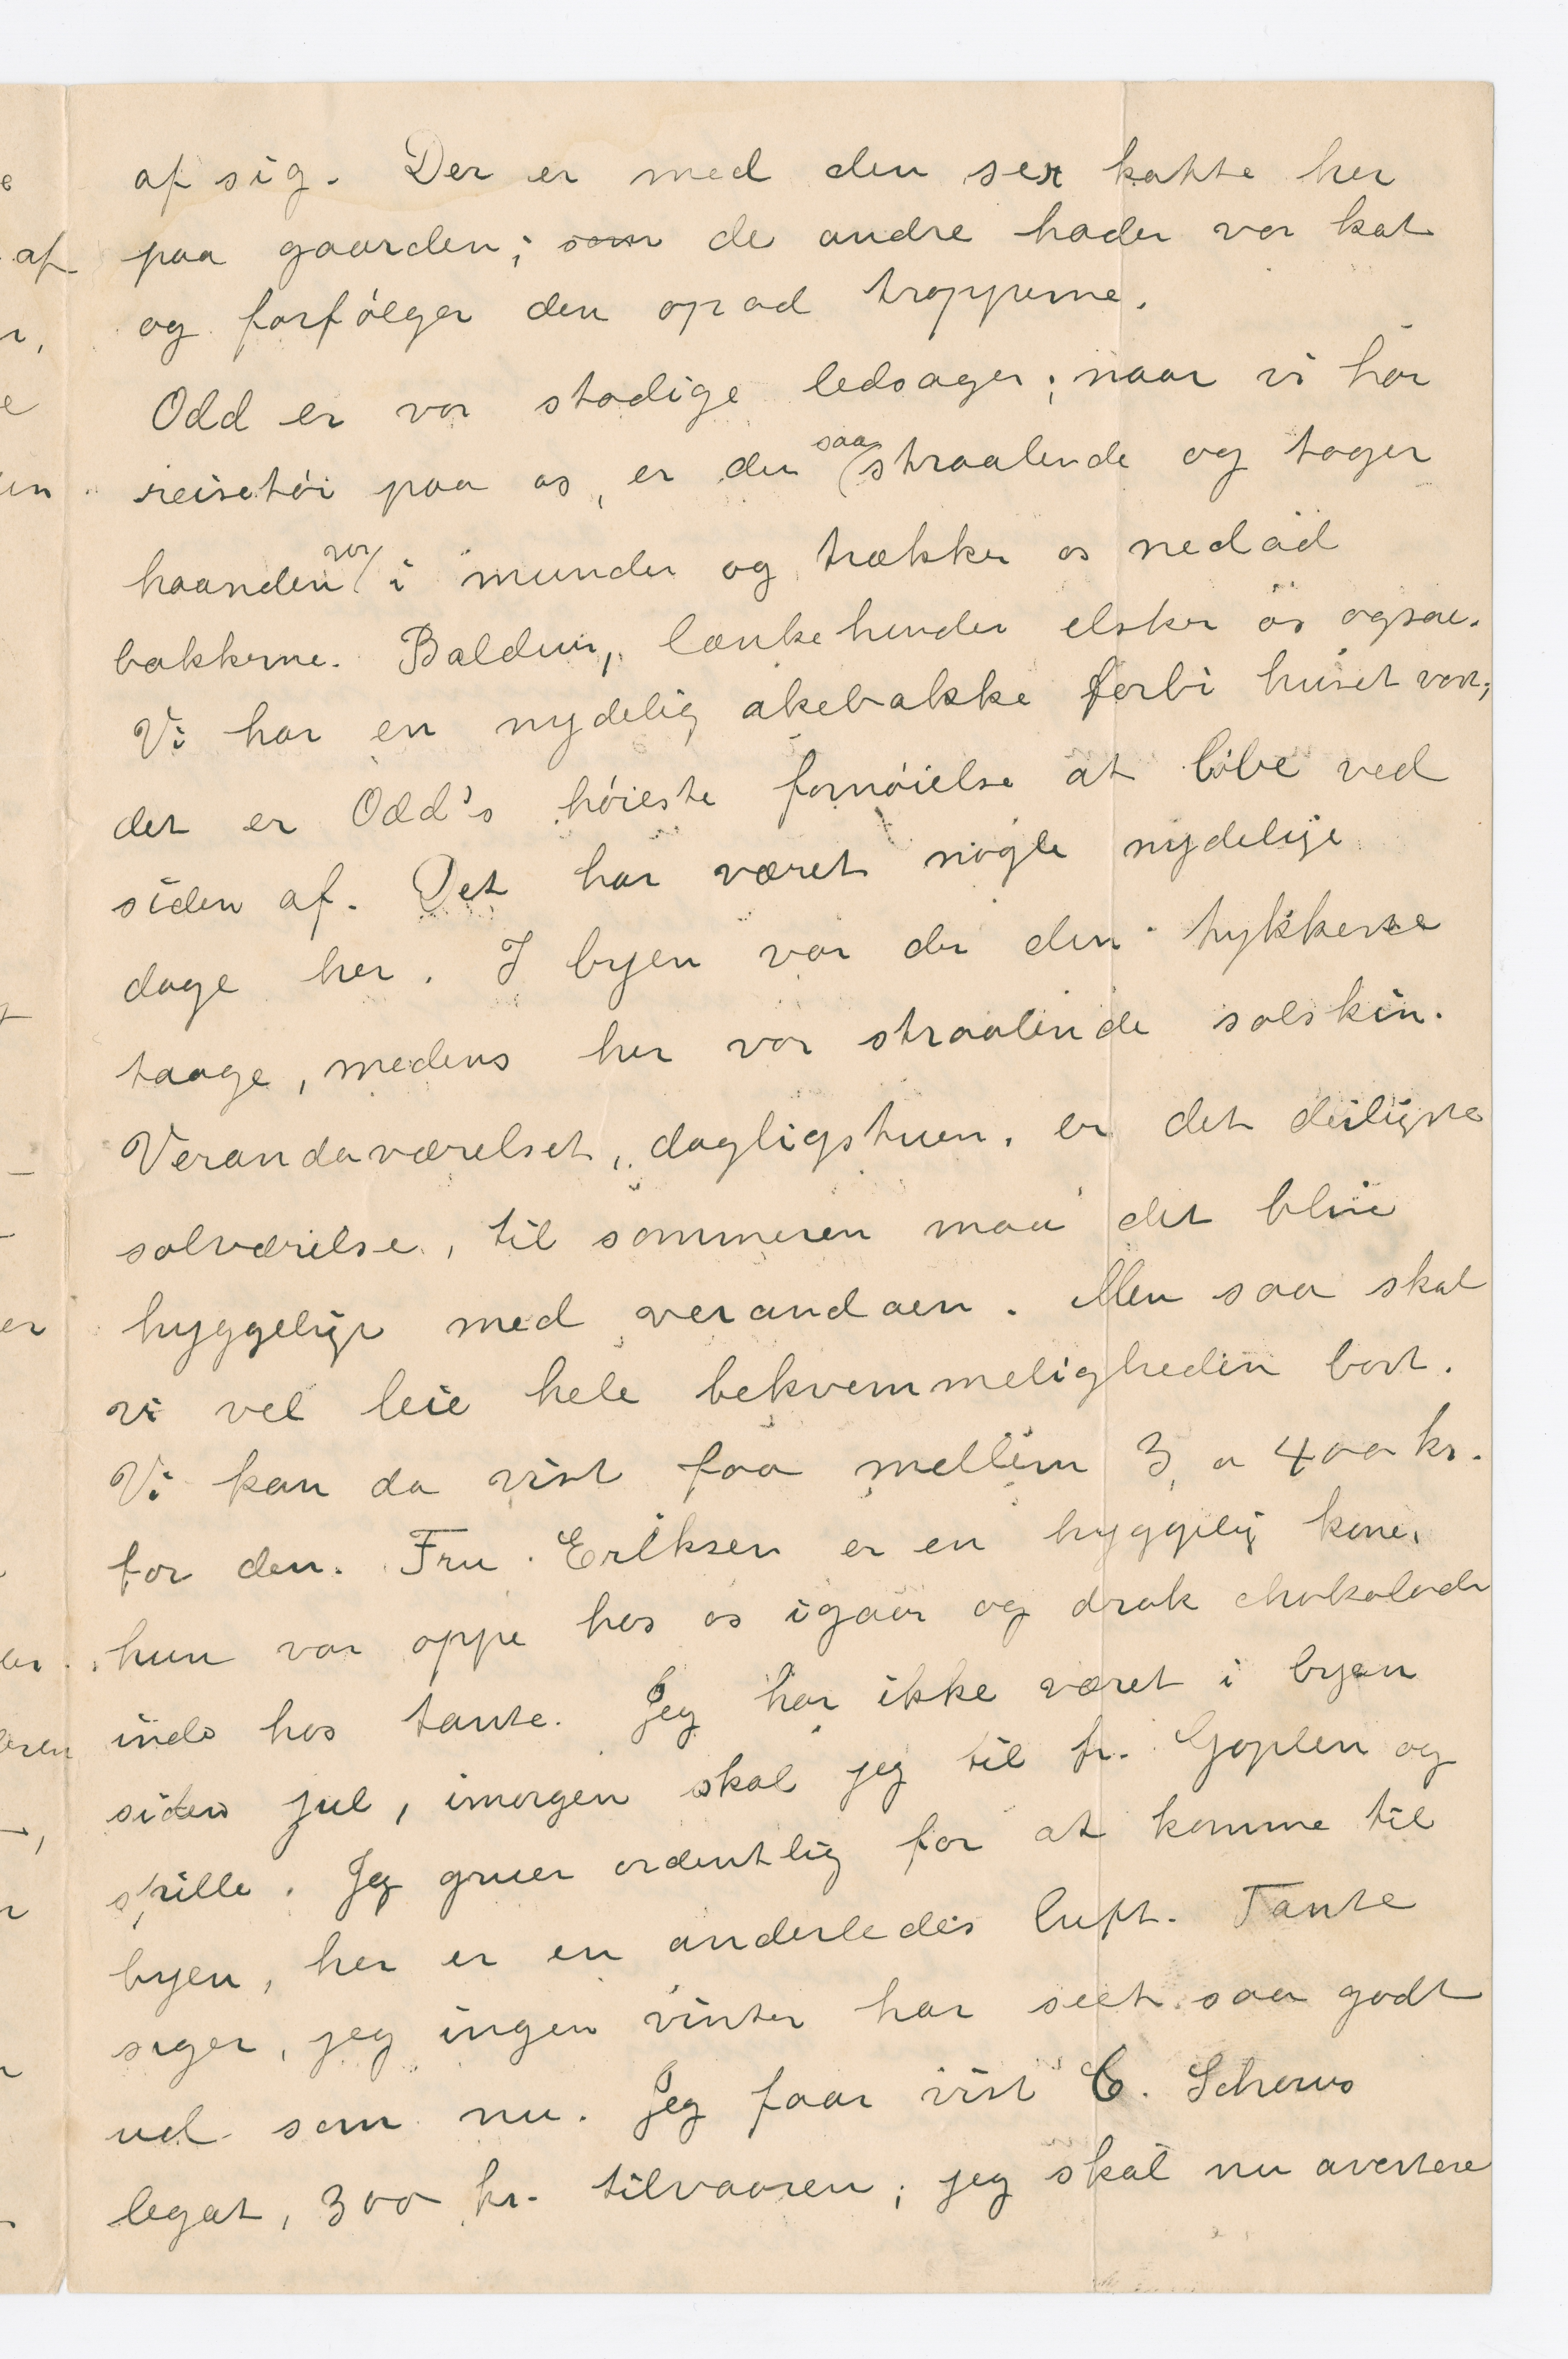 af sig. Der er med den sex katte her
paa gaarden; som de andre hader vor kat
og forfølger den opad trapperne.
Odd er vor stadige ledsager; naar vi har
reisetøi paa os, er den saa straalende og tager
haanden vor i munden og trækker os nedad
bakkerne. Balduin, lænkehunden elsker os ogsaa.
Vi har en nydelig akebakke forbi huset vort;
det er Odd's høieste fornøielse at løbe ved
siden af. Det har været nogle nydelige
dage her. I byen var der den tykkeste
taage, medens her var straalende solskin.
Verandaværelset, dagligstuen, er det deiligste
solværelse, til sommeren maa det blive
hyggeligt med verandaen. Men saa skal
vi vel leie hele bekvemmeligheden bort.
Vi kan da vist faa mellem 3 a 400 kr.
for den. Fru Eriksen er en hyggelig kone,
hun var oppe hos os igaar og drak chokolade
inde hos tante. Jeg har ikke været i byen
siden jul, imorgen skal jeg til fr. Goplen og
spille. Jeg gruer ordentlig for at komme til
byen, her er en anderledes luft. Tante
siger, jeg ingen vinter har seet saa godt
ud som nu. Jeg faar vist C. Schous
legat, 300 kr. tilvaaren; jeg skal nu avertere